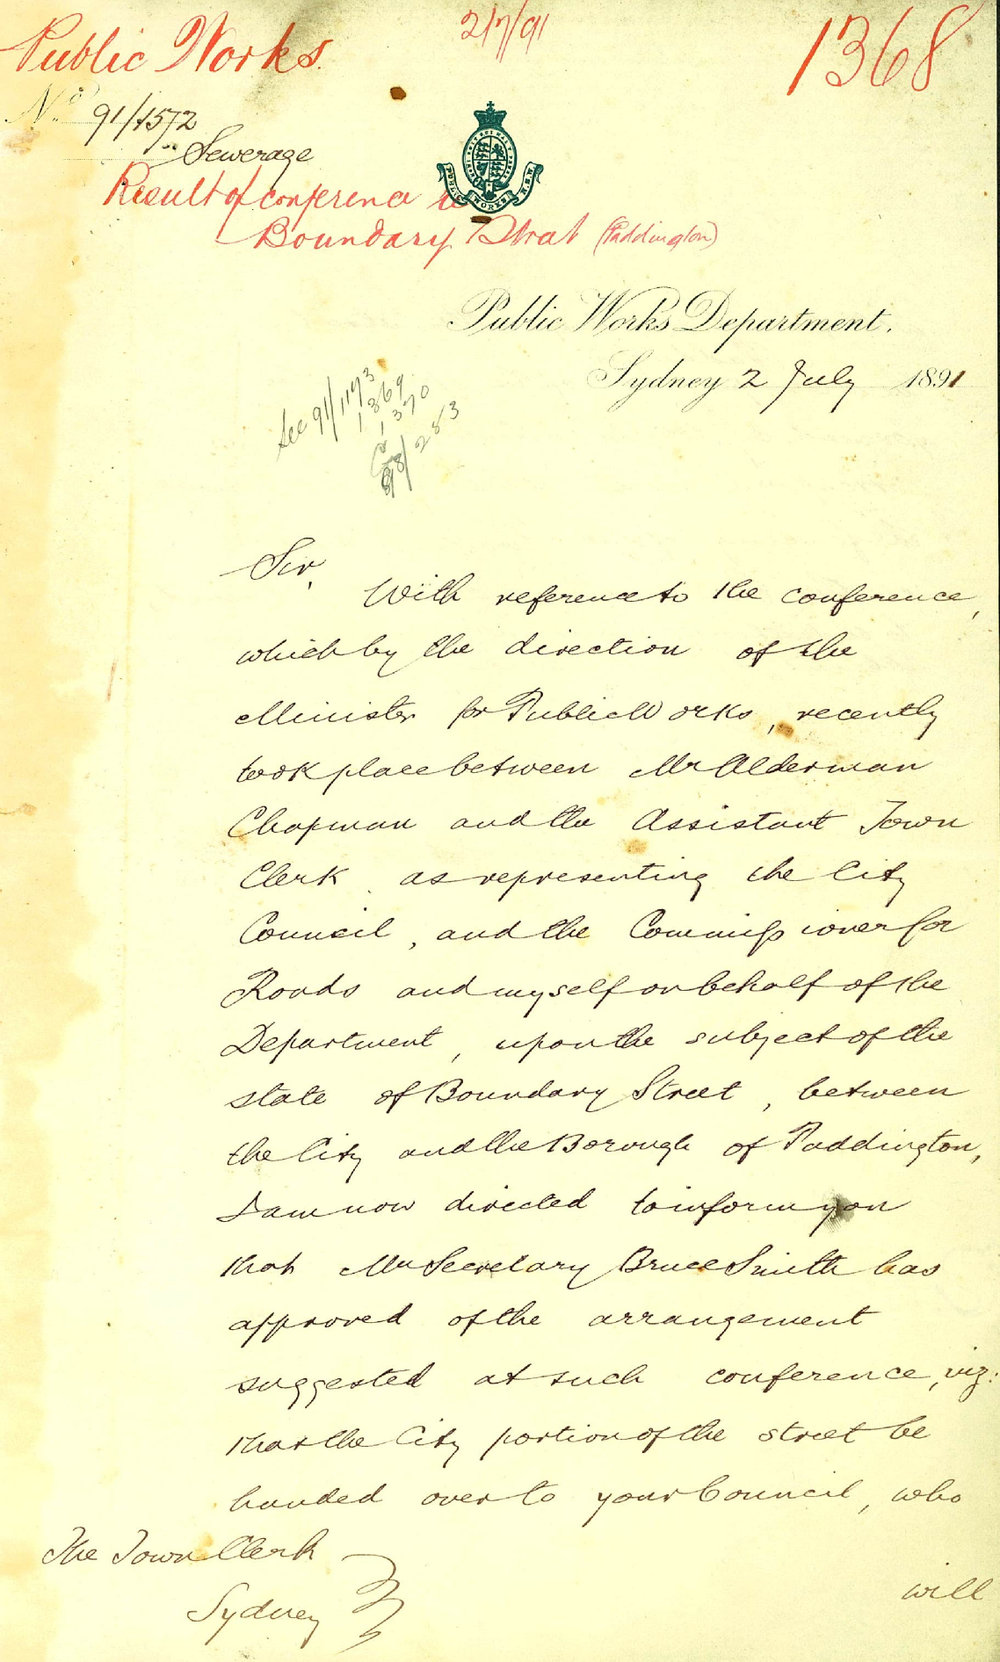 Public Works.
2/7/91
1368
No. 91/1572
Sewerage
Result of conference re
Boundary Street (Paddington)
PUBLIC WORKS N.S.W.
Public Works Department.
Sydney 2 July 1891
See 91/1193
1369
1370
283
Sir,
With reference to the conference,
which by the direction of the
Minister for Public Works, recently
took place between Mr Alderman
Chapman and the Assistant Town
Clerk as representing the City
Council, and the Commissioner for
Roads and myself on behalf of the
Department, upon the subject of the
state of Boundary Street, between
the City and the Borough of Paddington,
I am now directed to inform you
that Mr Secretary Bruce Smith has
approved of the arrangement
suggested at such conference, viz:
that the City portion of the street be
handed over to your Council, who
The Town Clerk
Sydney
will